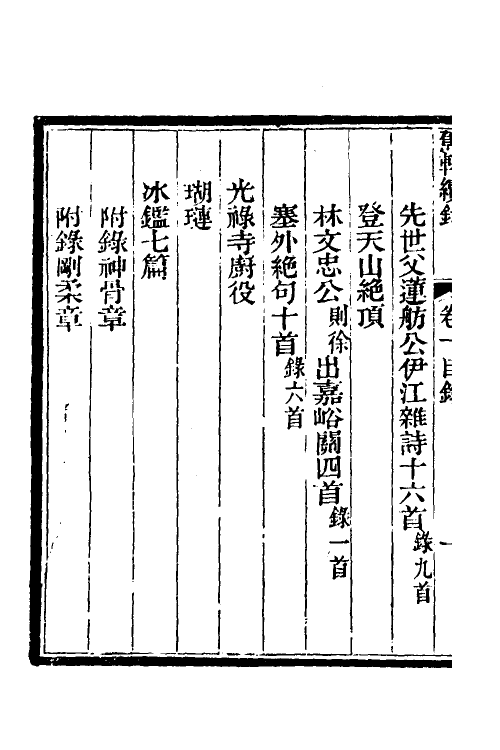 卷一目錄　一
先世父蓮舫公伊江雜詩十六首錄九首
登天山絕頂
林文忠公則徐出嘉峪關四首錄一首
塞外絕句十首錄六首
光祿寺廚役
瑚璉
冰鑑七篇
附錄神骨章
附錄剛柔章